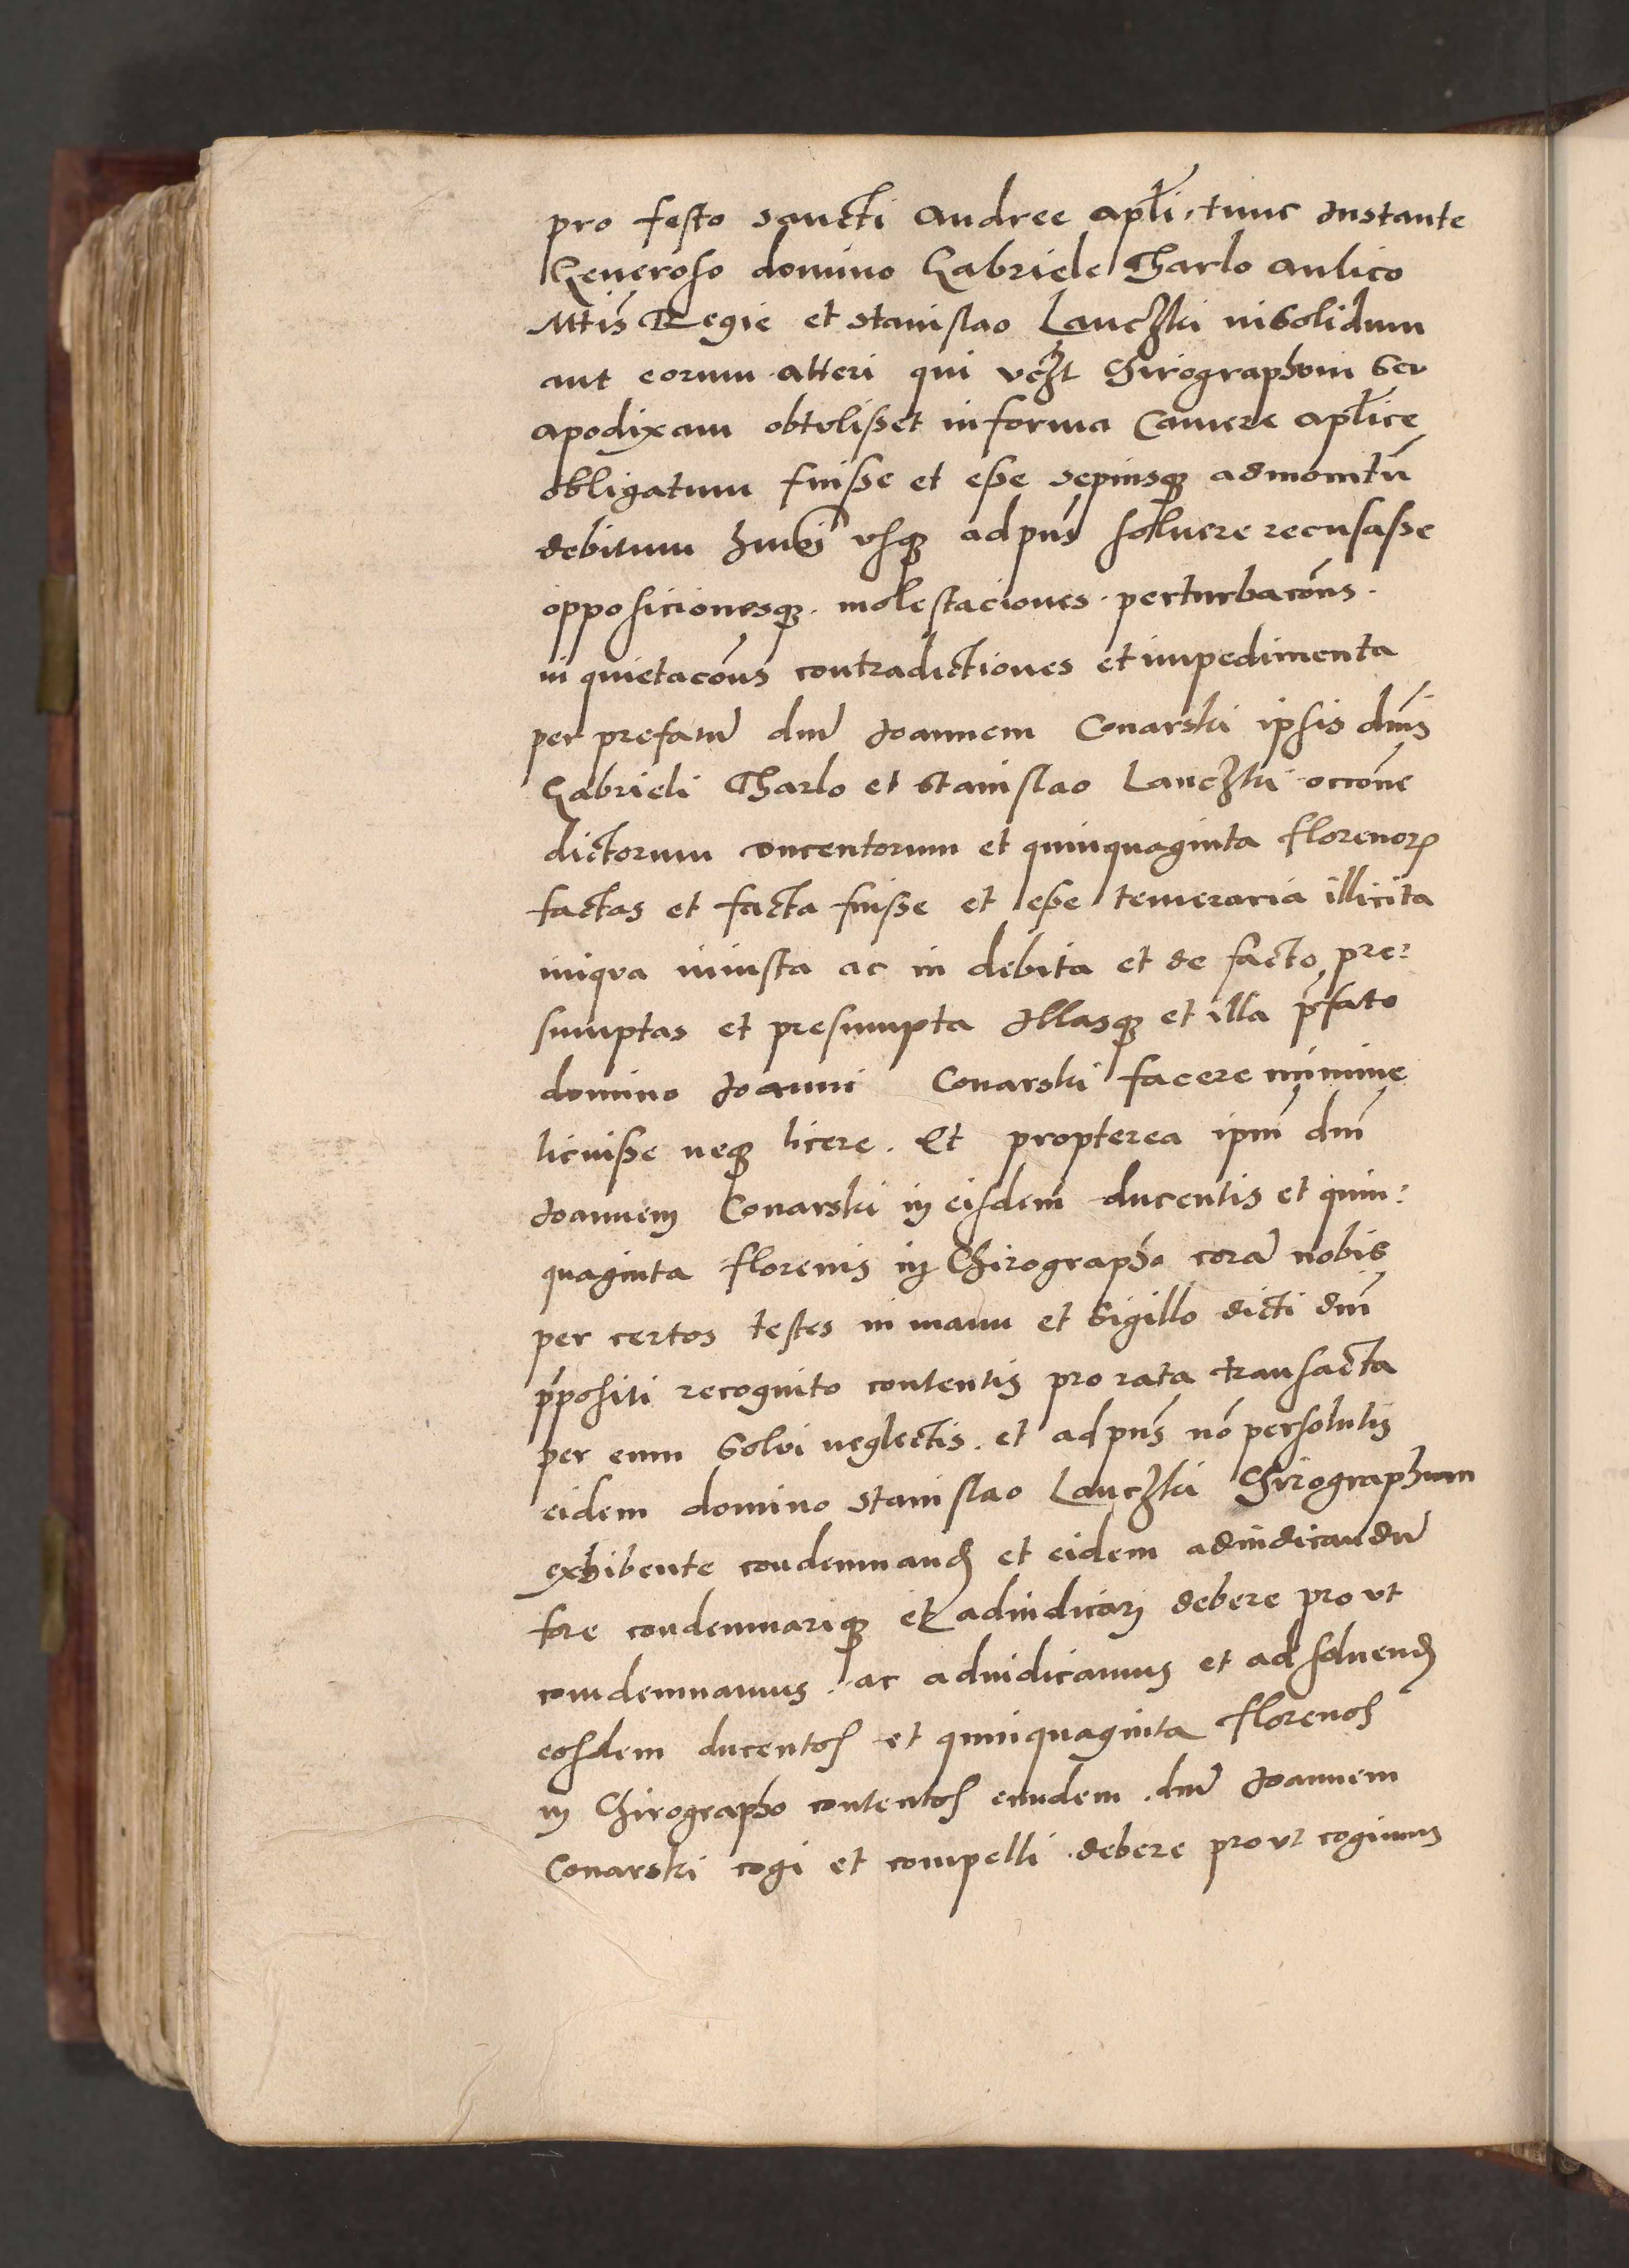 pro festo sancti Andree apl̄i, tunc Instante
Generoso domino Gabriele Tharlo aulico
Mtīs Regie et Stanislao Lanczki insolidum
aut eorum alteri qui Chirographum seu
apodixam obtulisset in forma Camere aplīce
obligatum fuisse et esse sepiusq3 admonitū
debitum usq3 ad pn̄s soluere recusasse
opposicionesq3. molestaciones. perturbacōnes.
in quietacōnes contradictiones et impedimenta
per prefatū dnū Joannem Conarski ipsis dn̄is
Gabrieli Tharlo et Stanislao Lanczki occōne
dictorum ducentorum et quinquaginta florenorꝝ
factas et facta fuisse et esse temeraria illicita
iniqua iniusta ac in debita et de facto pre:
sumptas et presumpta Illasq3 et illa p̄fato
domino Joanni Conarski facere minime
licuisse neq3 licere. Et propterea ipm̄ dnm̄
Joannem Conarski in eisdem ducentis et quin:
quaginta florenis in Chirographo corā nobis
per certos testes in manu et sigillo dicti dnī
p̄positi recognito contentis pro rata transacta
per eum solui neglectis. et ad pn̄s nō persolutis
eidem domino Stanislao Lanczki Chirographum
exhibente condemnand̄ et eidem adiudicandū
fore condemnariq3 et adiudicari debere pro ut
condemnamus. ac adiudicamus et ad soluend̄
eosdem ducentos et quinquaginta florenos
in Chirographo contentos eundem. dnū Joannem
Conarski cogi et compelli debere pro ut cogimus